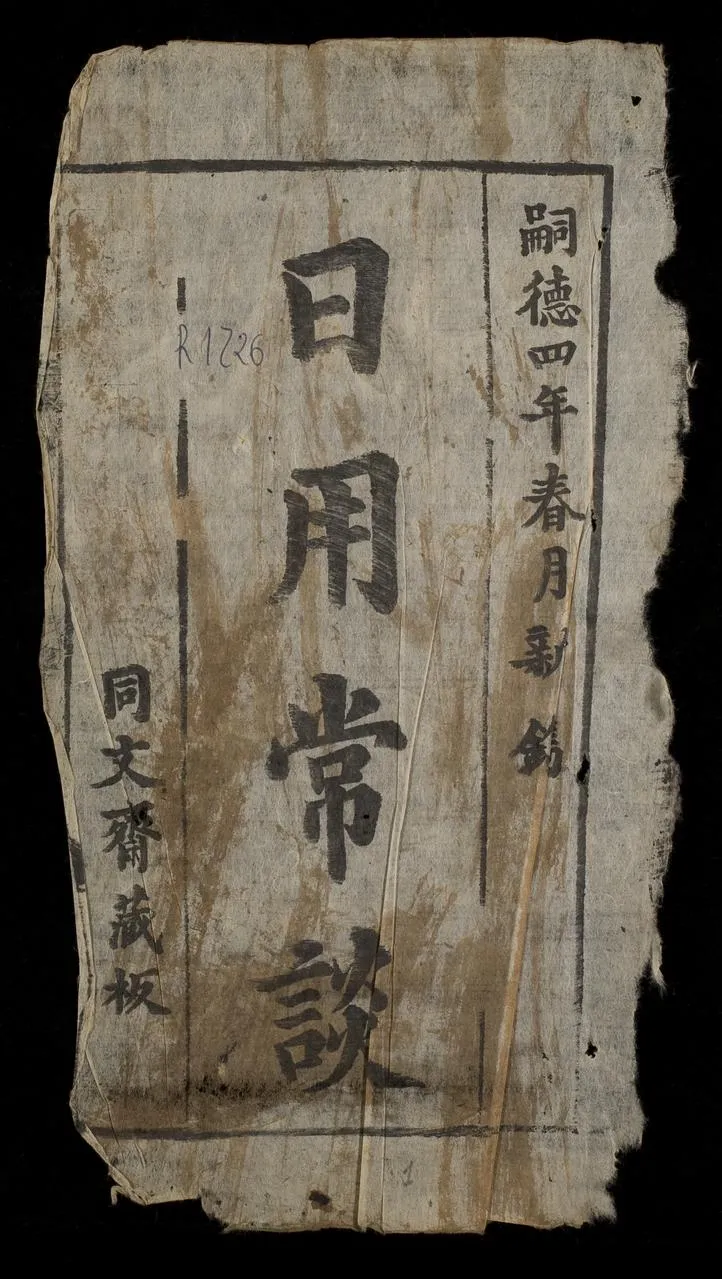 嗣德四年春月新鐫
日用常談
同文齋藏板
R 1726
1